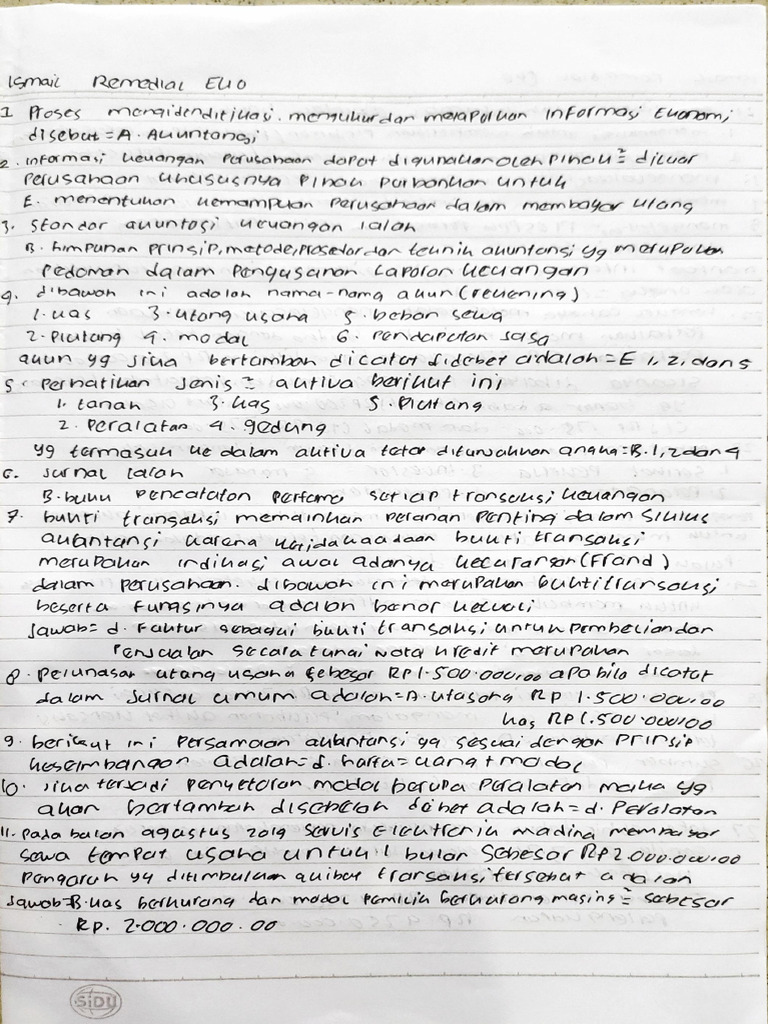 Ismail Remedial EKO
1 Proses mengidendifikasi. mengukur dan melaporkan informasi Ekonomi
disebut = A. Akuntansi
2. informasi keuangan perusahaan dapat digunakan oleh pihak² diluar
perusahaan khususnya pihak purbankan untuk
E. menentukan kemampuan perusahaan dalam membayar utang
3. standar akuntasi keuangan ialah
B. himpunan prinsip, metode, prosedor dan teknik akuntansi yg merupakan
pedoman dalam pengusanan Laporan keuangan
4. dibawah ini adalah nama-nama akun (rekening)
1. kas 3. utang usaha 5. beban sewa
2. piutang 4. modal 6. pendapatan jasa
akun yg jika bertambah dicatat didebet adalah = E 1, 2, dan 5
5. perhatikan jenis² aktiva berikut ini
1. tanah 3. kas 5. piutang
2. peralatan 4. gedung
yg termasuk ke dalam aktiva tetap ditunjukkan angka = B. 1, 2 dan 4
6. jurnal ialah
B. buku pencatatan pertama setiap transaksi keuangan
7. bukti transaksi memainkan peranan penting dalam siklus
akuntansi karena ketidakadaan bukti transaksi
merupakan indikasi awal adanya kecurangan (Frand)
dalam perusahaan. dibawah ini merupakan bukti transaksi
beserta fungsinya adalah benar kecuali
Jawab = d. Faktur sebagai bukti transaksi untuk pembelian dan
penjualan secara tunai nota kredit merupakan
8. pelunasan utang usaha sebesar RP 1.500.000,00 apabila dicatat
dalam jurnal umum adalah = A. utasaha RP 1.500.000,00
kas RP 1.500.000,00
9. berikut ini persamaan akuntansi yg sesuai dengan prinsip
keseimbangan adalah = d. harta = uang + modal
10. jika terjadi penyetoran modal berupa peralatan maka yg
akan bertambah disebelah debet adalah = d. Peralatan
11. pada bulan agustus 2019 servis elektronik madina membayar
sewa tempat usaha untuk 1 bulan sebesar RP 2.000.000,00
pengaruh yg ditimbulkan akibat transaksi tersebut adalah
Jawab = B. kas berkurang dan modal pemilik berkurang masing² sebesar
RP. 2.000.000.00
SiDU